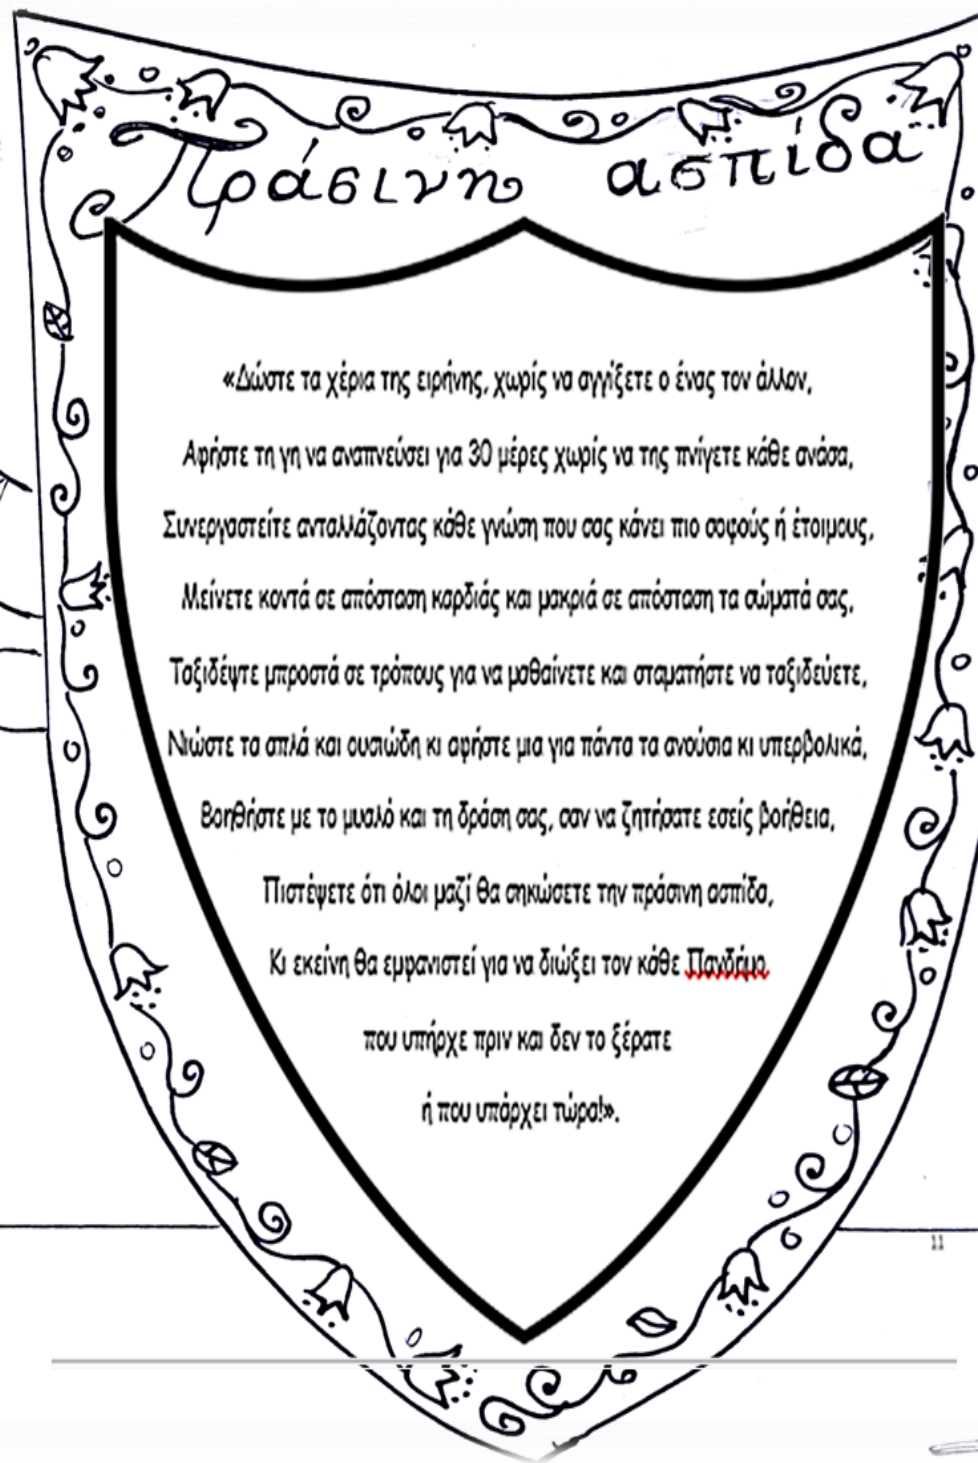 Πράσινη ασπίδα
«Δώστε τα χέρια της ειρήνης, χωρίς να αγγίξετε ο ένας τον άλλον,
Αφήστε τη γη να αναπνεύσει για 30 μέρες χωρίς να της πνίγετε κάθε ανάσα,
Συνεργαστείτε ανταλλάζοντας κάθε γνώση που σας κάνει πιο σοφούς ή έτοιμους,
Μείνετε κοντά σε απόσταση καρδιάς και μακριά σε απόσταση τα σώματά σας,
Ταξιδέψτε μπροστά σε τρόπους για να μαθαίνετε και σταματήστε να ταξιδεύετε,
Νιώστε τα απλά και ουσιώδη κι αφήστε μια για πάντα τα ανούσια κι υπερβολικά,
Βοηθήστε με το μυαλό και τη δράση σας, σαν να ζητήσατε εσείς βοήθεια,
Πιστέψετε ότι όλοι μαζί θα σηκώσετε την πράσινη ασπίδα,
Κι εκείνη θα εμφανιστεί για να διώξει τον κάθε Πανδέμο
που υπήρχε πριν και δεν το ξέρατε
ή που υπάρχει τώρα!».
11